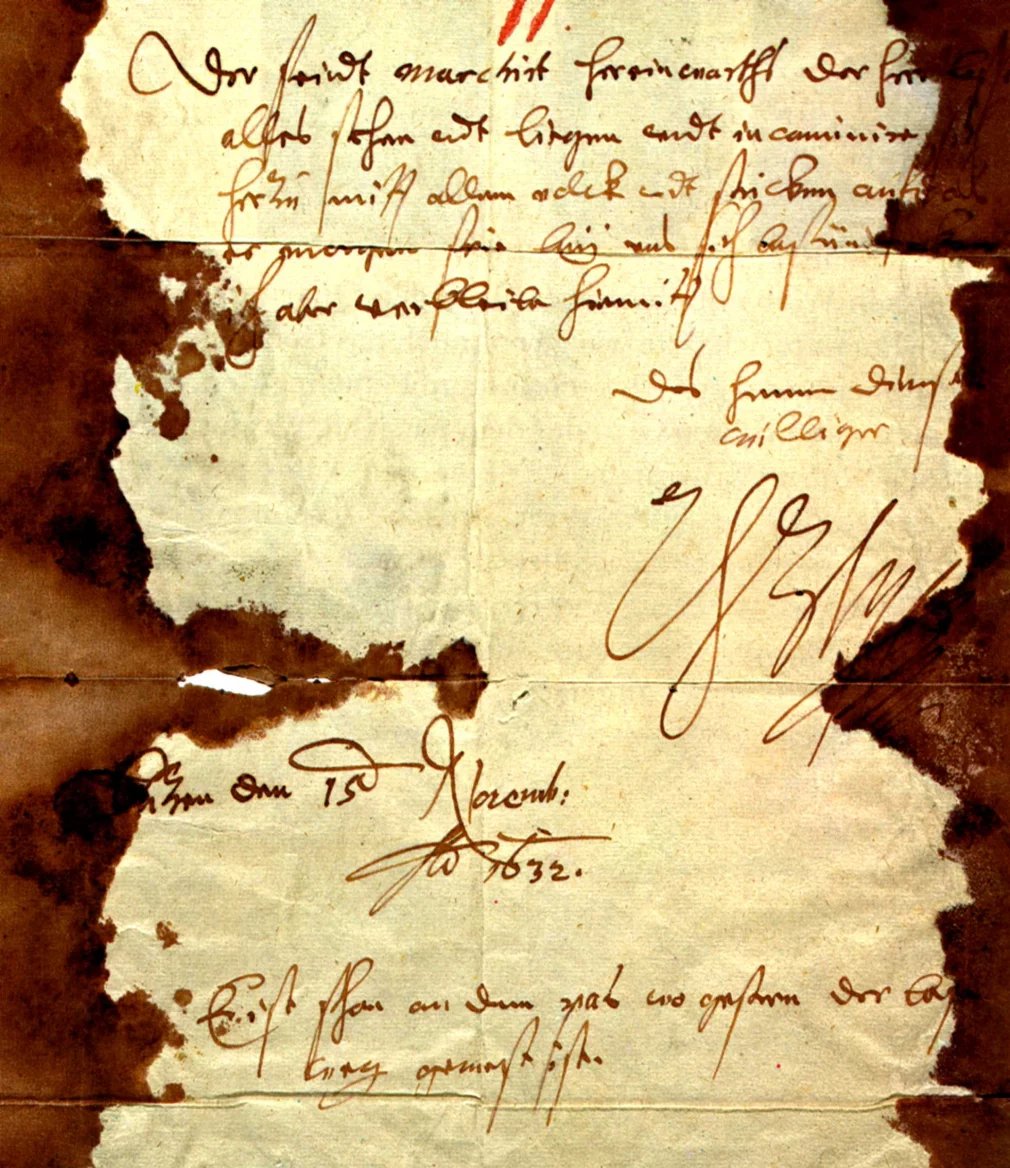 Der feindt marchirt hereinwarths der herr lasse
alles stehen undt liegen undt incaminire sich
herzu mitt allem volck undt stücken auf das
er morgen frue bey uns sich befünden
ich aber verbleibe hiemitt
Des herren dienst
williger
AHzM
Lützen den 15 Novemb:
Ao 1632.
Er ist schon an dem pas wo gestern der bose
weg gewest ist.